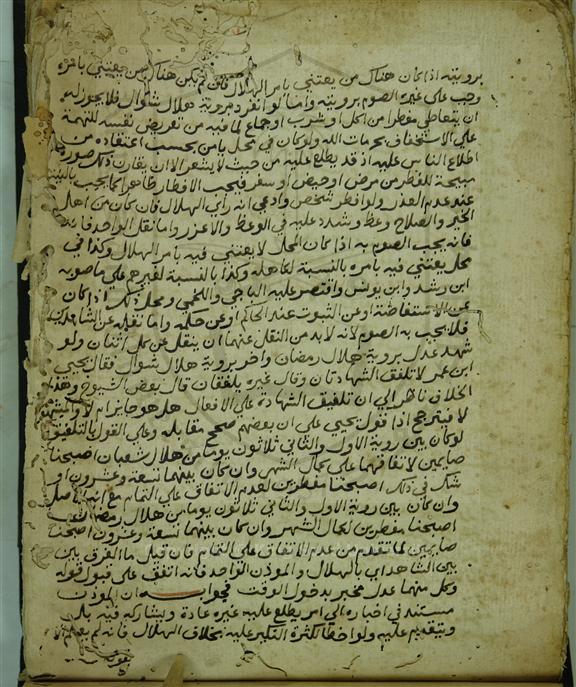 برويته اذا كان هناك من يعتني بامر الهلال فان لم يكن هناك من يعتني بامره
وجب على غيره الصوم برويته واما لو انفرد بروية هلال شوال فلا يجوز له
ان يتعاطى مفطرا من اكل او شرب او جماع لما فيه من تعريض نفسه للتهمة
على الاستخفاف بحرمات الله ولو كان في محل يامن بحسب اعتقاده من
اطلاع الناس عليه اذ قد يطلع عليه من حيث لا يشعر الا ان يقارن ذلك صورة
مبيحة للفطر من مرض او حيض او سفر فيجب الافطار ظاهرا كما يجب بالنية
عند عدم العذر ولو افطر شخص وادعى انه راى الهلال فان كان من اهل
الخير والصلاح وعظ وشدد عليه في الوعظ والا عزر واما نقل الواحد
فانه يجب الصوم به اذا كان المحل لا يعتنى فيه بامر الهلال وكذا في
محل يعتنى فيه بامره بالنسبة لكاهله وكذا بالنسبة لغيرهم على ما صوبه
ابن رشد وابن يونس واقتصر عليه الباجي واللخمي ومحل ذلك اذا كان
عن الاستفاضة او عن الثبوت عند الحاكم او عن حكمه واما نقله عن الشاهدين
فلا يجب به الصوم لانه لا بد من النقل عنهما ان ينقل عن كل اثنان ولو
شهد عدل بروية هلال رمضان واخر بروية هلال شوال فقال يحيى
ابن عمر لا تلفق الشهادتان وقال غيره يلفقان قال بعض الشيوخ وهذا
الخلاف ناظر الى ان تلفيق الشهادة على الافعال هل هو جايز ام لا والمشهور
لا فيترجح اذا قول يحيى على ان بعضهم صحح مقابله وعلى القول بالتلفيق
لو كان بين روية الاول والثاني ثلاثون يوما من هلال شعبان اصبحنا
صايمين لاتفاقهما على كمال الشهر وان كان بينهما تسعة وعشرون او
شك في ذلك اصبحنا مفطرين لعدم الاتفاق على التمام مع انه الاصل
وان كان بين روية الاول والثاني ثلاثون يوما من هلال رمضان
اصبحنا مفطرين لكمال الشهر وان كان بينهما تسعة وعشرون اصبحنا
صايمين لما تقدم من عدم الاتفاق على التمام فان قيل ما الفرق بين
بين الشاهد اي بالهلال والموذن الواحد فانه اتفق على قبول قوله
وكل منهما عدل مخبر بدخول الوقت فجوابه ان الموذن
مستند في اخباره الى امر يطلع عليه غيره عادة ويشاركه فيه بل
ويتقدم عليه ولو اخطا لكثرة النكير عليه بخلاف الهلال فانه لم